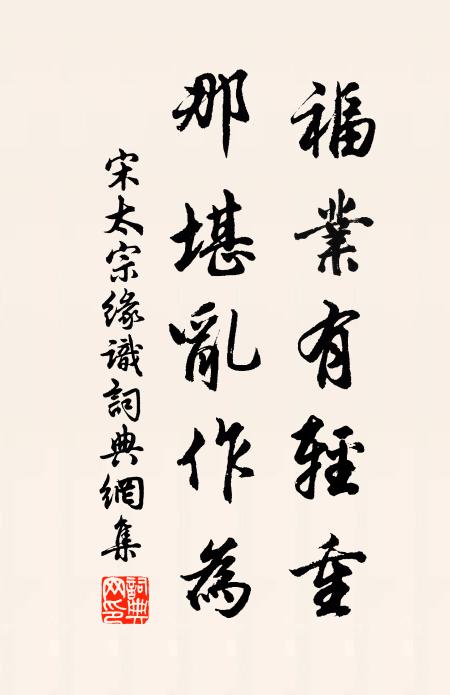 福業有輕重
那堪亂作為
宋太宗緣識詞典網集
詞典網印